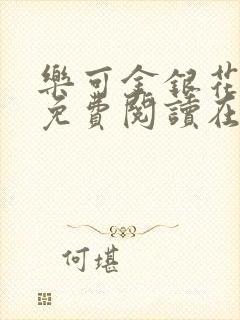 樂可金銀花
免費閱讀在
何堪